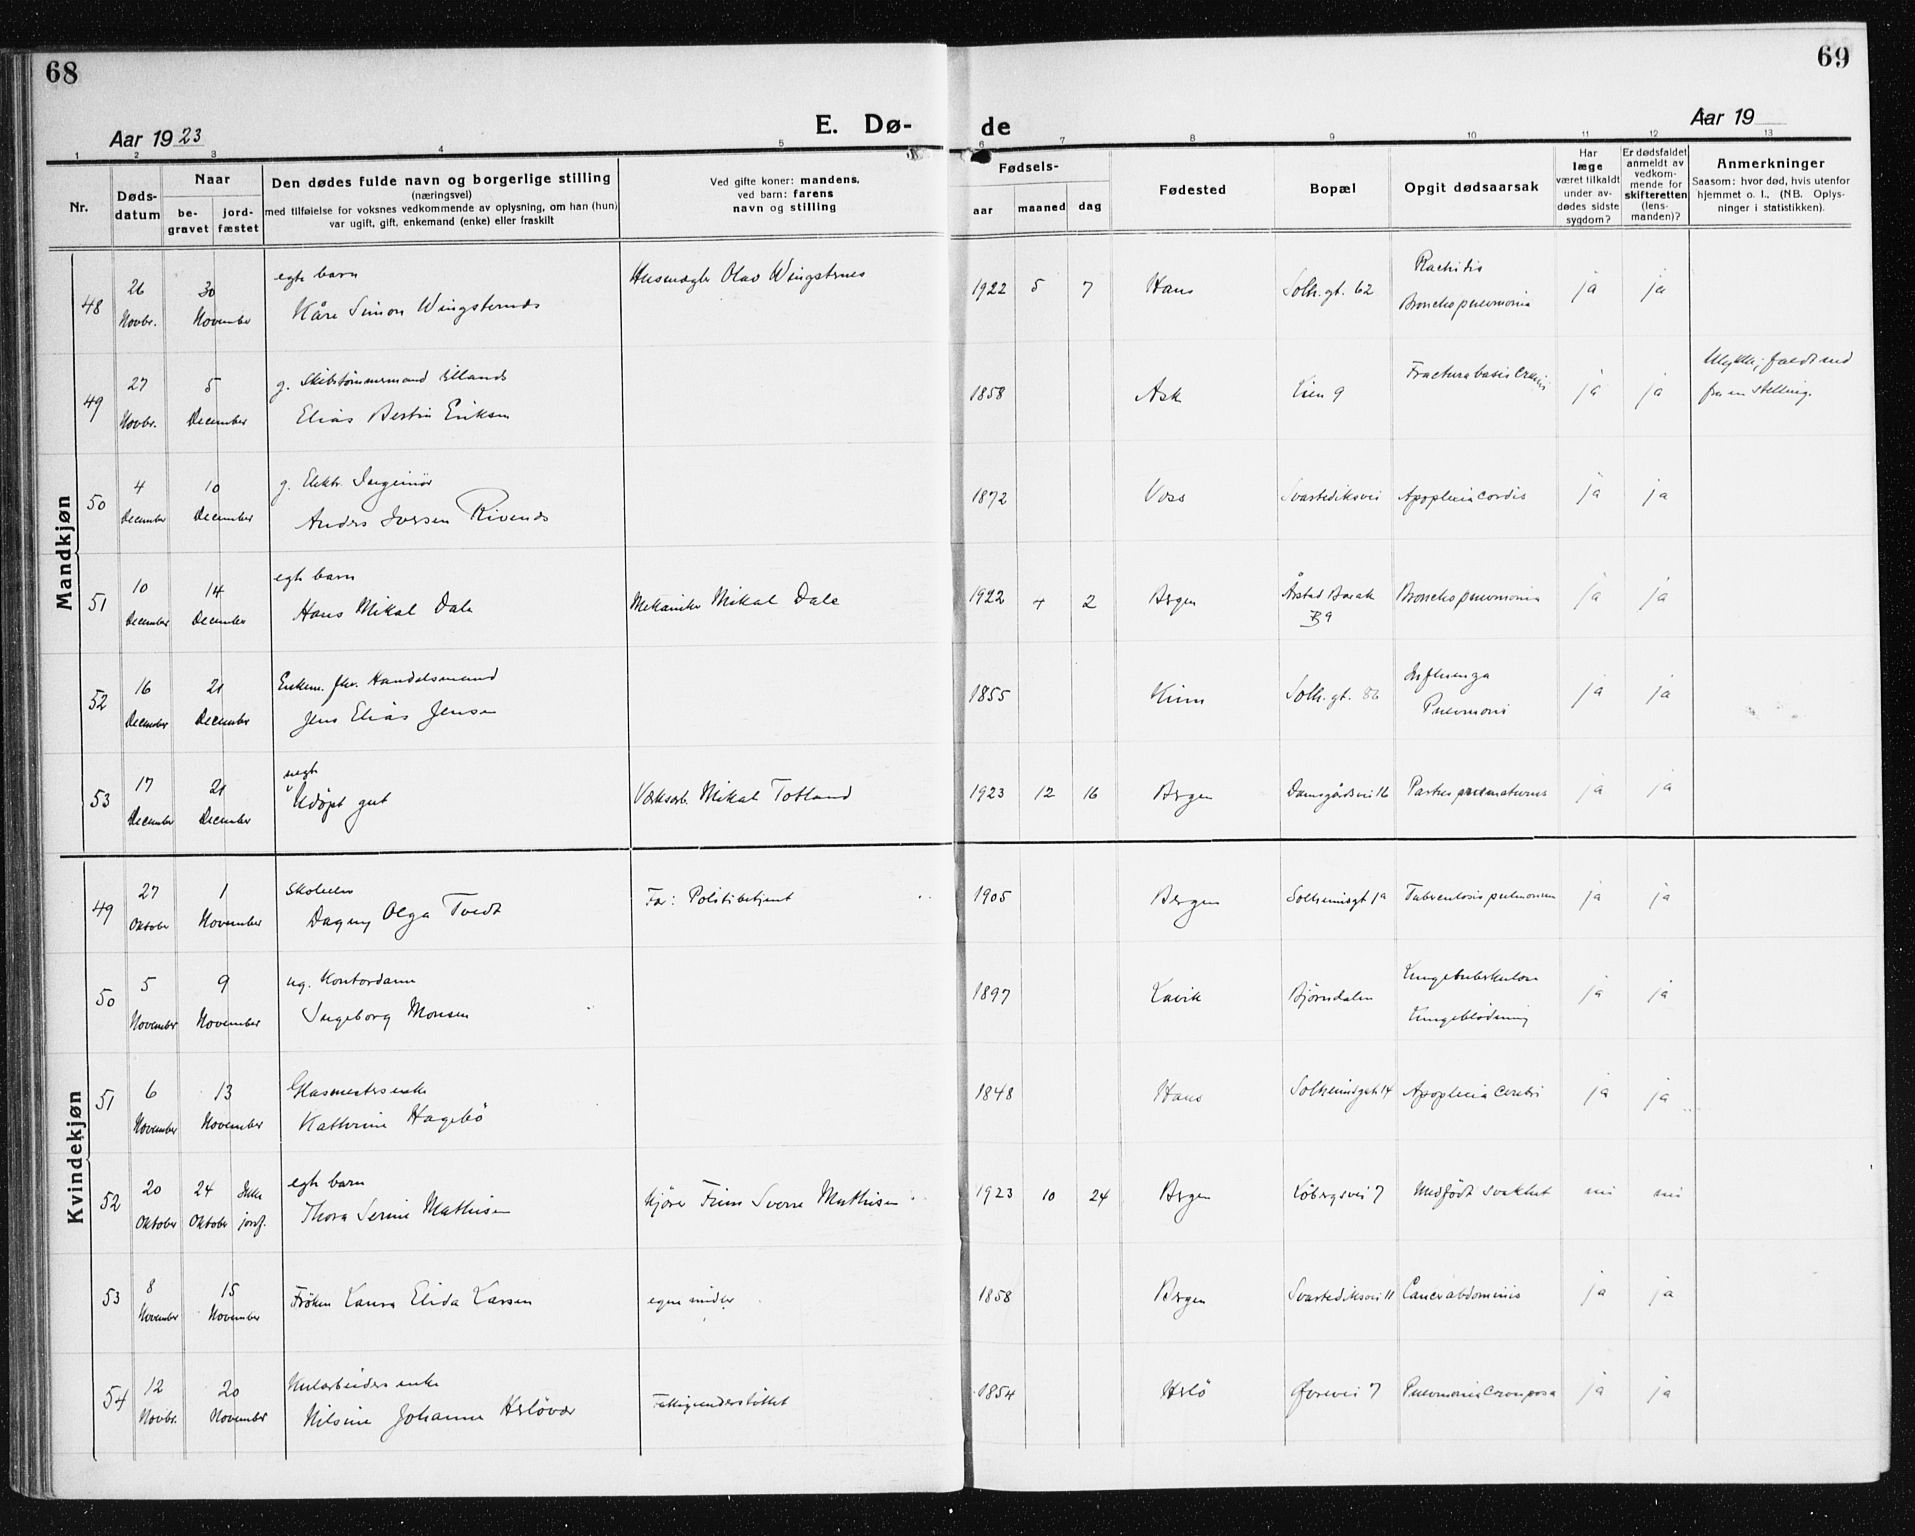 68
69
E. Dø- de
Aar 1923
Aar 19
1 2 3 4 5 6 7 8 9 10 11 12 13
Nr.
Døds-
datum
Naar
be-
gravet
jord-
fæstet
Den dødes fulde navn og borgerlige stilling
(næringsvei)
med tilføielse for voksnes vedkommende av oplysning, om han (hun)
var ugift, gift, enkemand (enke) eller fraskilt
Ved gifte koner: mandens,
ved barn: farens
navn og stilling
Fødsels-
aar
maaned
dag
Fødested
Bopæl
Opgit dødsaarsak
Har
læge
været tilkaldt
under av-
dødes sidste
sygdom?
Er dødsfaldet
anmeldt av
vedkom-
mende for
skifteretten
(lens-
manden)?
Anmerkninger
Saasom: hvor død, hvis utenfor
hjemmet o. l.. (NB. Oplys-
ninger i statistikken).
Mandkjøn
48 26 Novbr. 30 November egte barn
Kåre Simon Wingsternes Husmægler Olav Wingsternes 1922 5 7 Haus Solh. gt. 62 Rachitis
Bronchopneumonia ja ja
49 27 Novbr. 5 December g. Skibstømmermand
Elias Bertin Eriksen 1858 Ask Lien 9 Fractura basis cranii ja ja Ulykke, faldt ned
fra en stilling.
50 4 December 10 December g. Elektr. Ingeniør
Anders Iversen Rivenes 1872 Voss Svartediksvei Apoplexia cordis ja ja
51 10 December 14 December egte barn
Hans Mikal Dale Mekaniker Mikal Dale 1922 4 2 Bergen Årstad Barak
B 9 Bronchopneumonia ja ja
52 16 December 21 December Enkem. fhv. Handelsmand
Jens Elias Jensen 1855 Kinn Solh. gt. 86 Influenza
Pneumoni ja ja
53 17 December 21 December uegte
Udøpt gut Verksarb. Mikal Totland 1923 12 16 Bergen Damsgårdsvei 16 Partus præmaturus ja ja
Kvindekjøn
49 27 Oktober 1 November Skoleelev
Dagny Olga Tvedt Far: Politibetjent 1905 Bergen Solheimsgt 1a Tuberculosis pulmonum ja ja
50 5 November 9 November ug. Kontordame
Ingeborg Monsen 1897 Lavik Bjørndalen Lungetuberkulose
Lungeblödning ja ja
51 6 November 13 November Glasmesters enke
Kathrine Hagebö 1848 Haus Solheimsgt 14 Apoplexia cerebri ja ja
52 20 Oktober 24 Oktober Ikke
jordf. egte barn
Thora Serine Mathisen Kjører Finn Sverre Mathisen 1923 10 24 Bergen Løbergsvei 7 Medfödt svakhet nei nei
53 8 November 15 November Frøken Laura Elida Larsen egne midler 1858 Bergen Svartediksvei 11 Cancer abdominis ja ja
54 12 Novbr. 20 November Kularbeiders enke
Nilsine Johanne Herlövær Fattigunderstöttet 1854 Herlö Øvrevei 7 Pneumonia crouposa ja ja